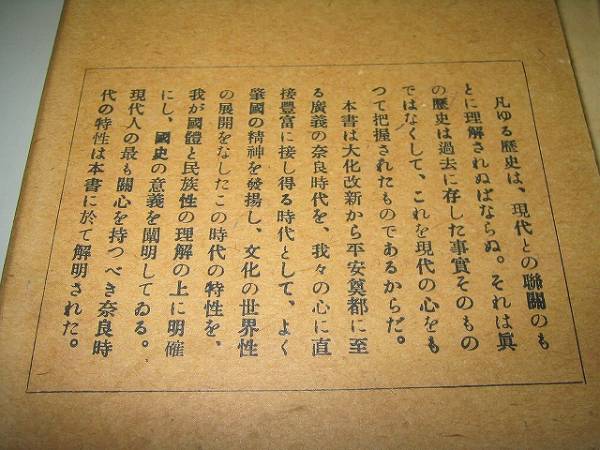 凡ゆる歷史は、現代との聯關のも
とに理解されねばならぬ。それは眞
の歷史は過去に存した事實そのもの
ではなくして、これを現代の心をも
つて把握されたものであるからだ。
本書は大化改新から平安奠都に至
る廣義の奈良時代を、我々の心に直
接豐富に接し得る時代として、よく
肇國の精神を發揚し、文化の世界性
の展開をなしたこの時代の特性を、
我が國體と民族性の理解の上に明確
にし、國史の意義を闡明してゐる。
現代人の最も關心を持つべき奈良時
代の特性は本書に於て解明された。